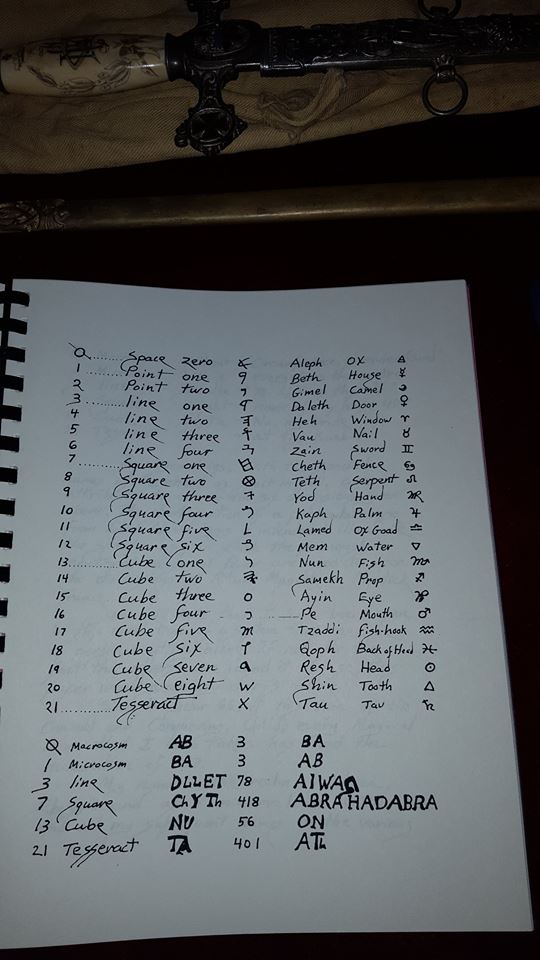 0........ Space zero 𐤀 Aleph Ox 🜁
1 ........ Point one 𐤁 Beth House ☿
2 Point two 𐤂 Gimel Camel ☽
3 ........ line one 𐤃 Daleth Door ♀
4 line two 𐤄 Heh Window ♈
5 line three 𐤅 Vau Nail ♉
6 line four 𐤆 Zain Sword ♊
7 ........ Square one 𐤇 Cheth Fence ♋
8 Square two ⊗ Teth Serpent ♌
9 Square three 𐤉 Yod Hand ♍
10 Square four 𐤊 Kaph Palm ♃
11 Square five L Lamed Ox Goad ♎
12 Square six 𐤌 Mem Water ▽
13........ Cube one 𐤍 Nun Fish ♏
14 Cube two 𐤎 Samekh Prop ♐
15 Cube three o Ayin Eye ♑
16 Cube four 𐤐 ........ Pe Mouth ♂
17 Cube five 𐤑 Tzaddi fish-hook ♒
18 Cube six 𐤒 Qoph Back of Head ♓
19 Cube seven 𐤓 Resh Head ☉
20 Cube eight W Shin Tooth △
21 ........ Tesseract X Tau Tav ♄
0 Macrocosm AB 3 BA
1 Microcosm BA 3 AB
3 line DLLET 78 AIWAſſ
7 Square ChYTh 418 ABRAHADABRA
13 Cube NU 56 ON
21 Tesseract TA 401 ATh